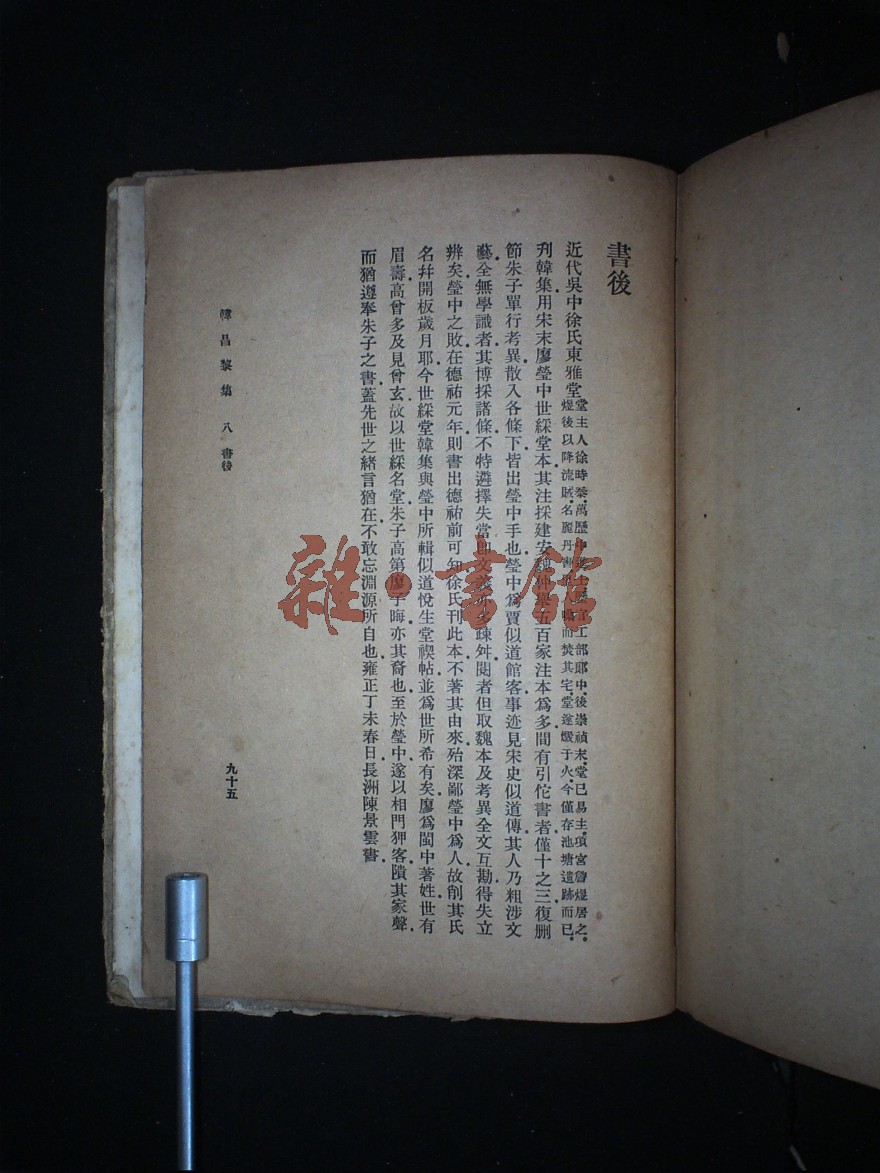 書後
近代吳中徐氏東雅堂堂主人徐時泰萬歷中進士歷官工部郎中後崇禎末堂已易主項宮詹煜居之
煜後以降流賊名麗丹書里人噪而焚其宅堂遂燬于火今僅存池塘遺跡而已
刋韓集用宋末廖瑩中世綵堂本其注採建安魏仲舉五百家注本爲多間有引佗書者僅十之三復删
節朱子單行考異散入各條下皆出瑩中手也瑩中爲賈似道館客事迹見宋史似道傳其人乃粗涉文
藝全無學識者其博採諸條不特遴擇失當即文義亦多疎舛閱者但取魏本及考異全文互勘得失立
辨矣瑩中之敗在德祐元年則書出德祐前可知徐氏刊此本不著其由來殆深鄙瑩中爲人故削其氏
名幷開板歲月耶今世綵堂韓集與瑩中所輯似道悅生堂禊帖並爲世所希有矣廖爲閩中著姓世有
眉壽高曾多及見曾玄故以世綵名堂朱子高第廖子晦亦其裔也至於瑩中遂以相門狎客隤其家聲
而猶遵奉朱子之書蓋先世之緒言猶在不敢忘淵源所自也雍正丁未春日長洲陳景雲書
韓昌黎集 八 書後
九十五
雜·書館